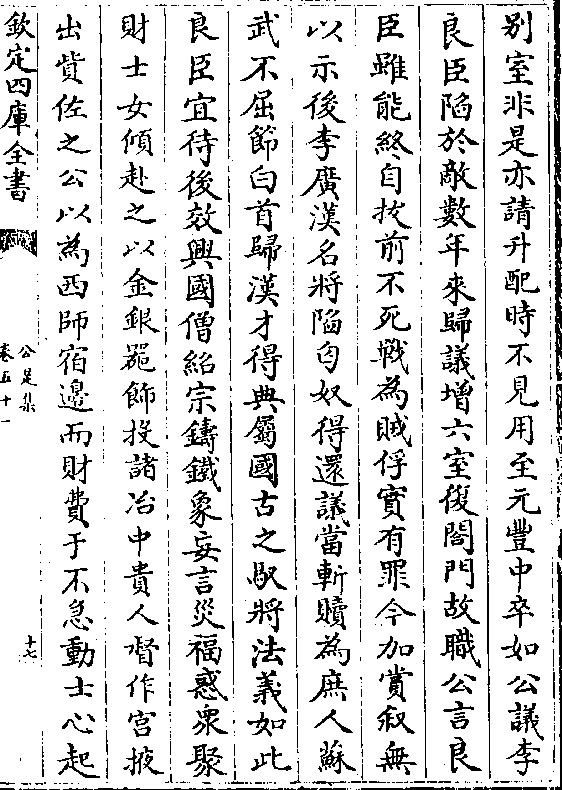 別室非是亦請升配時不見用至元豐中卒如公議李
良臣陷於敵數年來歸議增六室復閤門故職公言良
臣雖能終自拔前不死戰為賊俘實有罪今加賞叙無
以示後李廣漢名將陷匈奴得還議當斬贖為庶人蘇
武不屈節白首歸漢才得典屬國古之馭將法義如此
良臣宜待後效興國僧紹宗鑄鐵象妄言災福惑衆聚
財士女傾赴之以金銀器飾投諸冶中貴人督作宫掖
出貲佐之公以為西師宿邉而財費于不急動士心起
欽定四庫全書
公是集
卷五十一
十七